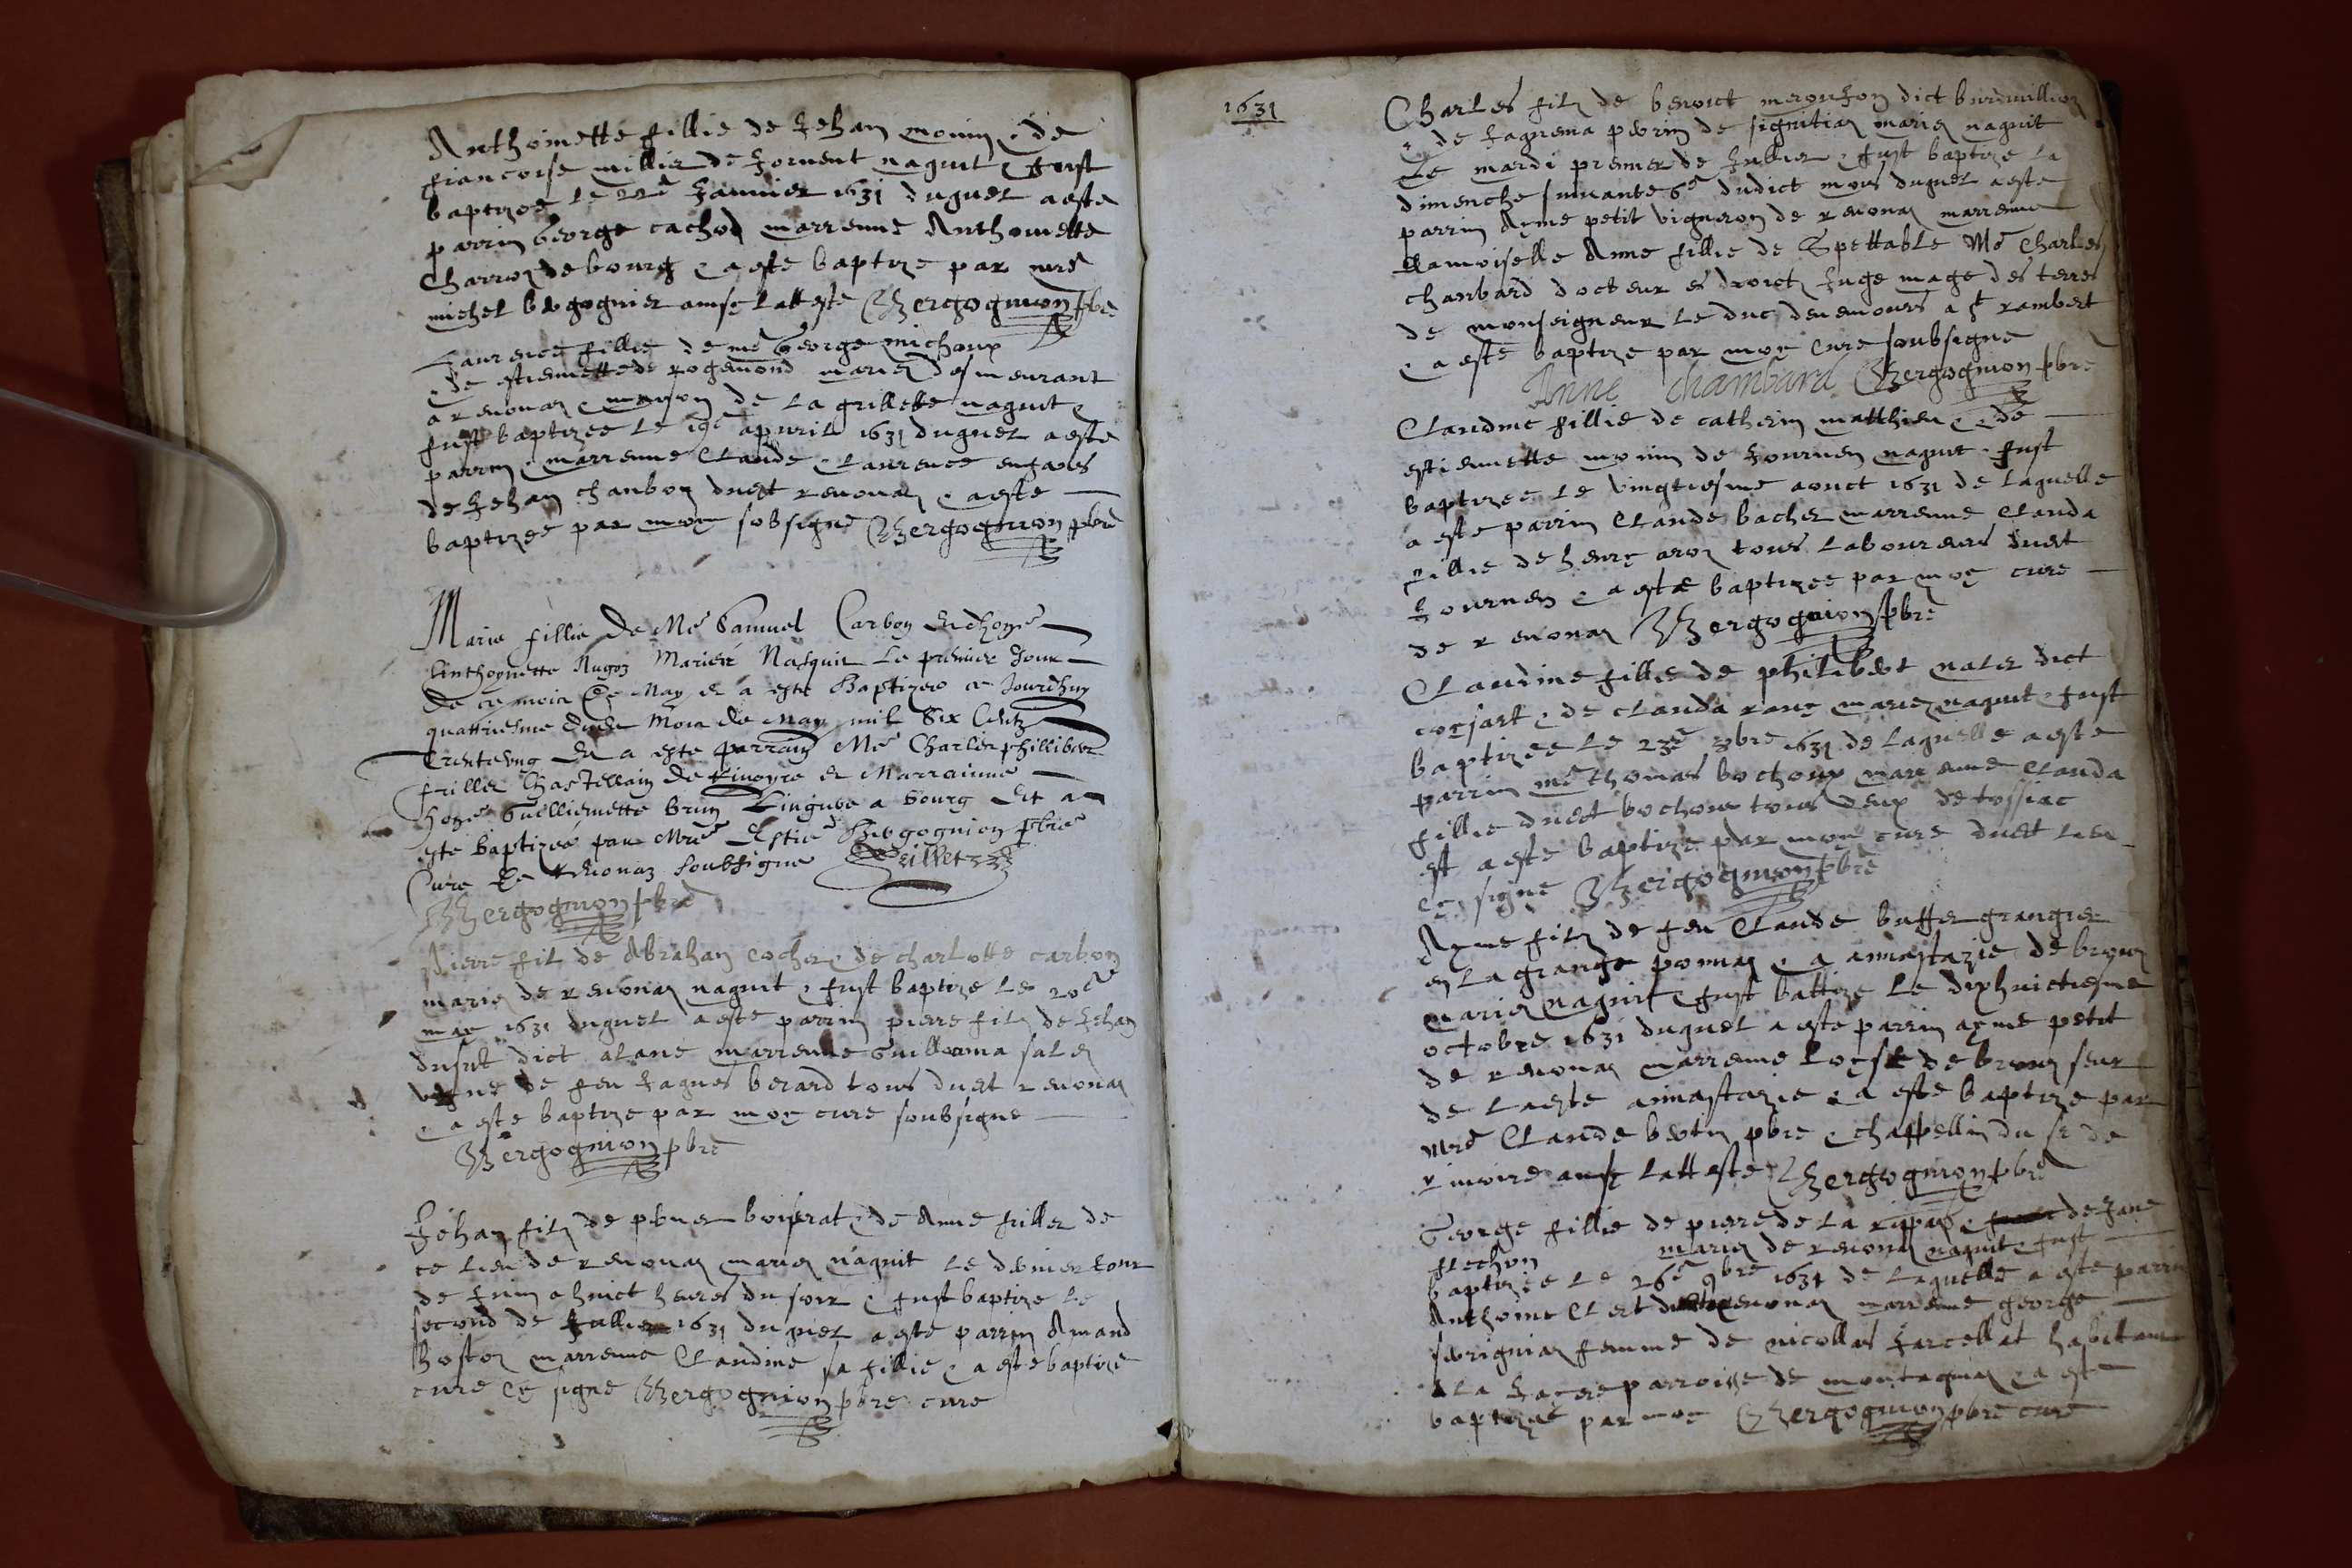 Anthoinette fillie de Jehan monin & de
francoise millier de Jornent naquit & fust
baptizee le 22e Januier 1631 duquel a este
parrin George cachod marrenne Anthoinette
Charron de bourg & a este baptize par mre
michel bergognier ainsy latteste Bergognion pbre
Laurence fillie de me George michoux
& de estiennette de rogemond mariez desmeurant
a reuonas maison de la grillette naquit &
fust baptizee le 19e apuril 1631 duquel a este
parrin & marrenne Claude & Laurence enfans
de Jehan chanbon dudt reuonas & a este
baptizee par moy sobsigne Bergognion pbre
Marie fillie de Me Samuel Carbon & d'hone
Anthoynette Mariez Nasquit le premier Jour
de ce moix de May et a este Baptizee ce Jourdhuy
quattriesme dudt Moix de May mil Six Centz
trente vng En a este parrain Me Charles phillibert
friller Chastellain de Riuoyre et Marrainne
hone Guilliemette brun lingere a bourg Et a
este baptizee par Mre Estie Bergognion pbre
Cure de Reuonaz soubsigne
Bergognion pbre
Pierre filz de Abrahan cocher & de charlotte carbon
mariez de reuonas naquit & fust baptize le 20e
may 1631 duquel a este parrin pierre filz de Jehan
dufut dict alane marrenne Guillerma sales
vefue de feu Jaques berard tous dudt reuonas
& a este baptize par moy cure soubsigne
Bergognion pbre
Jehan filz de boisrat & de Anne friller de
ce lieu de reuonas mariez naquit le dernier Jour
de Juin a huict heures du soir & fust baptize le
second de Jullier 1631 duquel a este parrin Amand
Boston marrenne Claudine sa fillie & a este baptize
cure & signe Bergognion pbre cure
1631
Charles filz de benoict meonson dict burdmillion
& de Jaquema perrin de signitias mariez naquit
le mardi premier de Jullier & fust baptize la
dimenche suiuante 6e dudict mois duquel a este
parrin Ayme petit vigneron de reuonas marrenne
damoiselle Anne fillie de Spettable Me Charles
chanbard docteur es droictz Juge mage des terres
de monseigneur le duc de nemours a st rambert
& a este baptize par moy cure soubsigne
Anne Chambard Bergognion pbre
Claudine fillie de catherin matthieu & de
estiennette monin de Journen naquit & fust
baptizee le vingtiesme aouct 1631 de laquelle
a este parrin Claude bacher marrenne Clauda
fillie de henry aron tous laboureurs dudt
Journen & a este baptizee par moy cure
de reuonas Bergognion pbre
Claudine fillie de philibert nales dict
cosjart & de clauda rane mariez naquit & fust
baptizee le 23e 1631 de laquelle a este
parrin me thomas bochoux marrenne Clauda
fillie dudt bochoux tous deux de tossiac
et a este baptize par moy cure dudt lieu
& signe Bergognion pbre
Ayme filz de feu Claude buffer grangier
en la grange & a annastazie de bron
mariez naquit & fust battize le dixhuictiesme
octobre 1631 duquel a este parrin ayme petit
de reuonas marrenne loyse de bron seur
de ladte annastazie & a este baptize par
mre Claude bertin pbre & chappellin du sr de
riuoire ainsy latteste Bergognion pbre
George fillie de pierre de la rippas & de Jane
flechon mariez de reuonas naquit & fust
baptizee le 26e 9bre 1631 de laquelle a este parrin
Anthoine Clert dudt reuonas marrenne george
serignias femme de nicollas Jarcellat habitant
a la parroisse de montagnas & a este
baptizee par moy Bergognion pbre cure